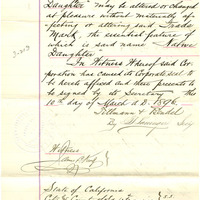 Daughter" may be altered or changed
at pleasure without materially af-
fecting or altering said Trade
Mark, the essential feature of
which is said name "Native
Daughter"
In Witness Whereof said Cor-
poration has caused its Corporate seal to
be hereto affixed and these presents to
be signed by its Secretary this
10th day of March A.D. 1896.
Tillmann & Bendel
By Secy
Witness
State of California